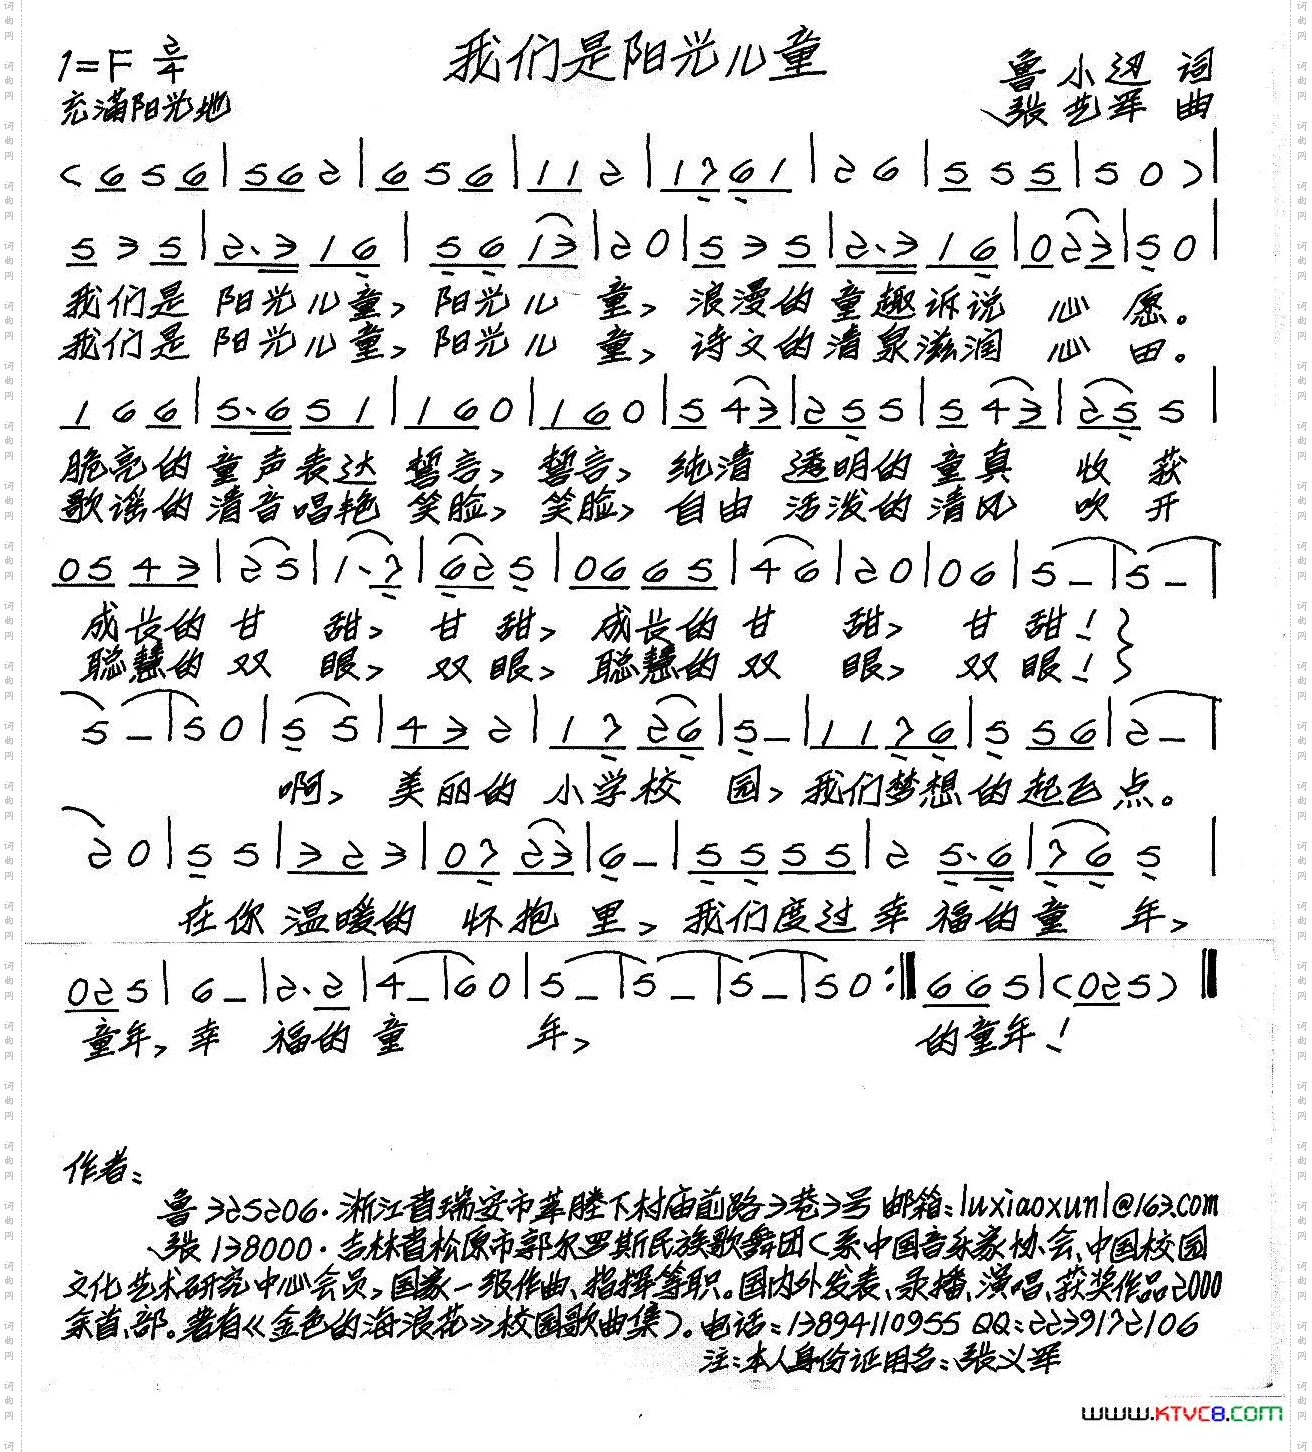 我们是阳光儿童
1=F 2/4
鲁小迅 词
充满阳光地
张艺军 曲
(6 5 6|5 6 2|6 5 6|1 1 2|1 7 6 1|2 6|5 5 5|5 0)|
5 3 5|2·3 1 6|5 6 1 3|2 0|5 3 5|2·3 1 6|0 2 3|5 0|
我们是 阳光儿童, 阳光儿 童, 浪漫的 童趣诉说 心 愿。
我们是 阳光儿童, 阳光儿 童, 诗文的 清泉滋润 心 田。
1 6 6|5·6 5 1|1 6 0|1 6 0|5 4 3|2 5 5|5 4 3|2 5 5|
脆亮的 童声表达 誓言, 誓言, 纯清 透明的 童真 收 获
歌谣的 清音唱艳 笑脸, 笑脸, 自由 活泼的 清风 吹 开
0 5 4 3|2 5|1·7|6 2 5|0 6 6 5|4 6|2 0|0 6|5 –|5 –|
成长的 甘 甜, 甘 甜, 成长的 甘 甜, 甘 甜!}
聪慧的 双 眼, 双 眼, 聪慧的 双 眼, 双 眼!}
5 –|5 0|5 5|4 3 2|1 7 2 6|5 –|1 1 7 6|5 5 6|2 –|
啊, 美丽的 小学校 园, 我们梦想 的起飞 点。
2 0|5 5|3 2 3|0 7 2 3|6 –|5 5 5 5|2 5·6|7 6 5|
在你 温暖的 怀抱 里, 我们度过 幸 福的 童 年,
0 2 5|6 –|2·2|4 –|6 0|5 –|5 –|5 –|5 0:‖6 6 5|(0 2 5)‖
童年, 幸 福的 童 年, 的童年!
作者:
鲁 325206·浙江省瑞安市莘塍下村庙前路3巷3号 邮箱:luxiaoxun1@163.com
张 138000·吉林省松原市郭尔罗斯民族歌舞团(系中国音乐家协会、中国校园
文化艺术研究中心会员,国家一级作曲、指挥等职。国内外发表、录播、演唱、获奖作品2000
余首、部。著有《金色的海浪花》校园歌曲集)。电话:13894110955 QQ:2239172106
注:本人身份证用名:张义军
www.KTVC8.COM